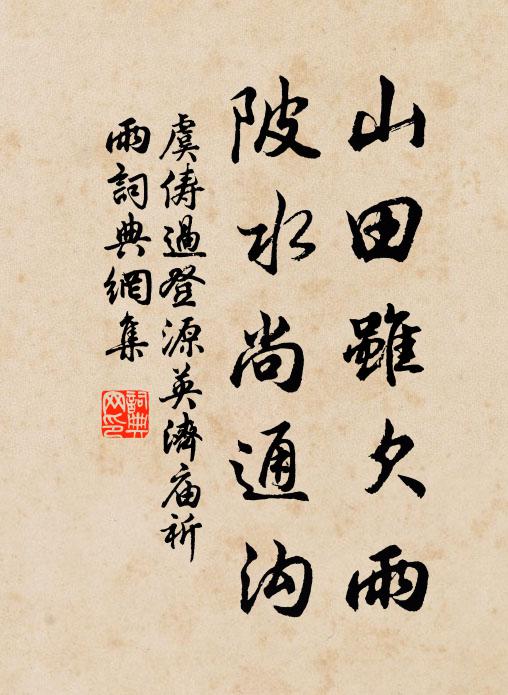 山田雖欠雨
陂水尚通沟
虞俦過登源英濟庙祈
雨詞典網集
詞典网印